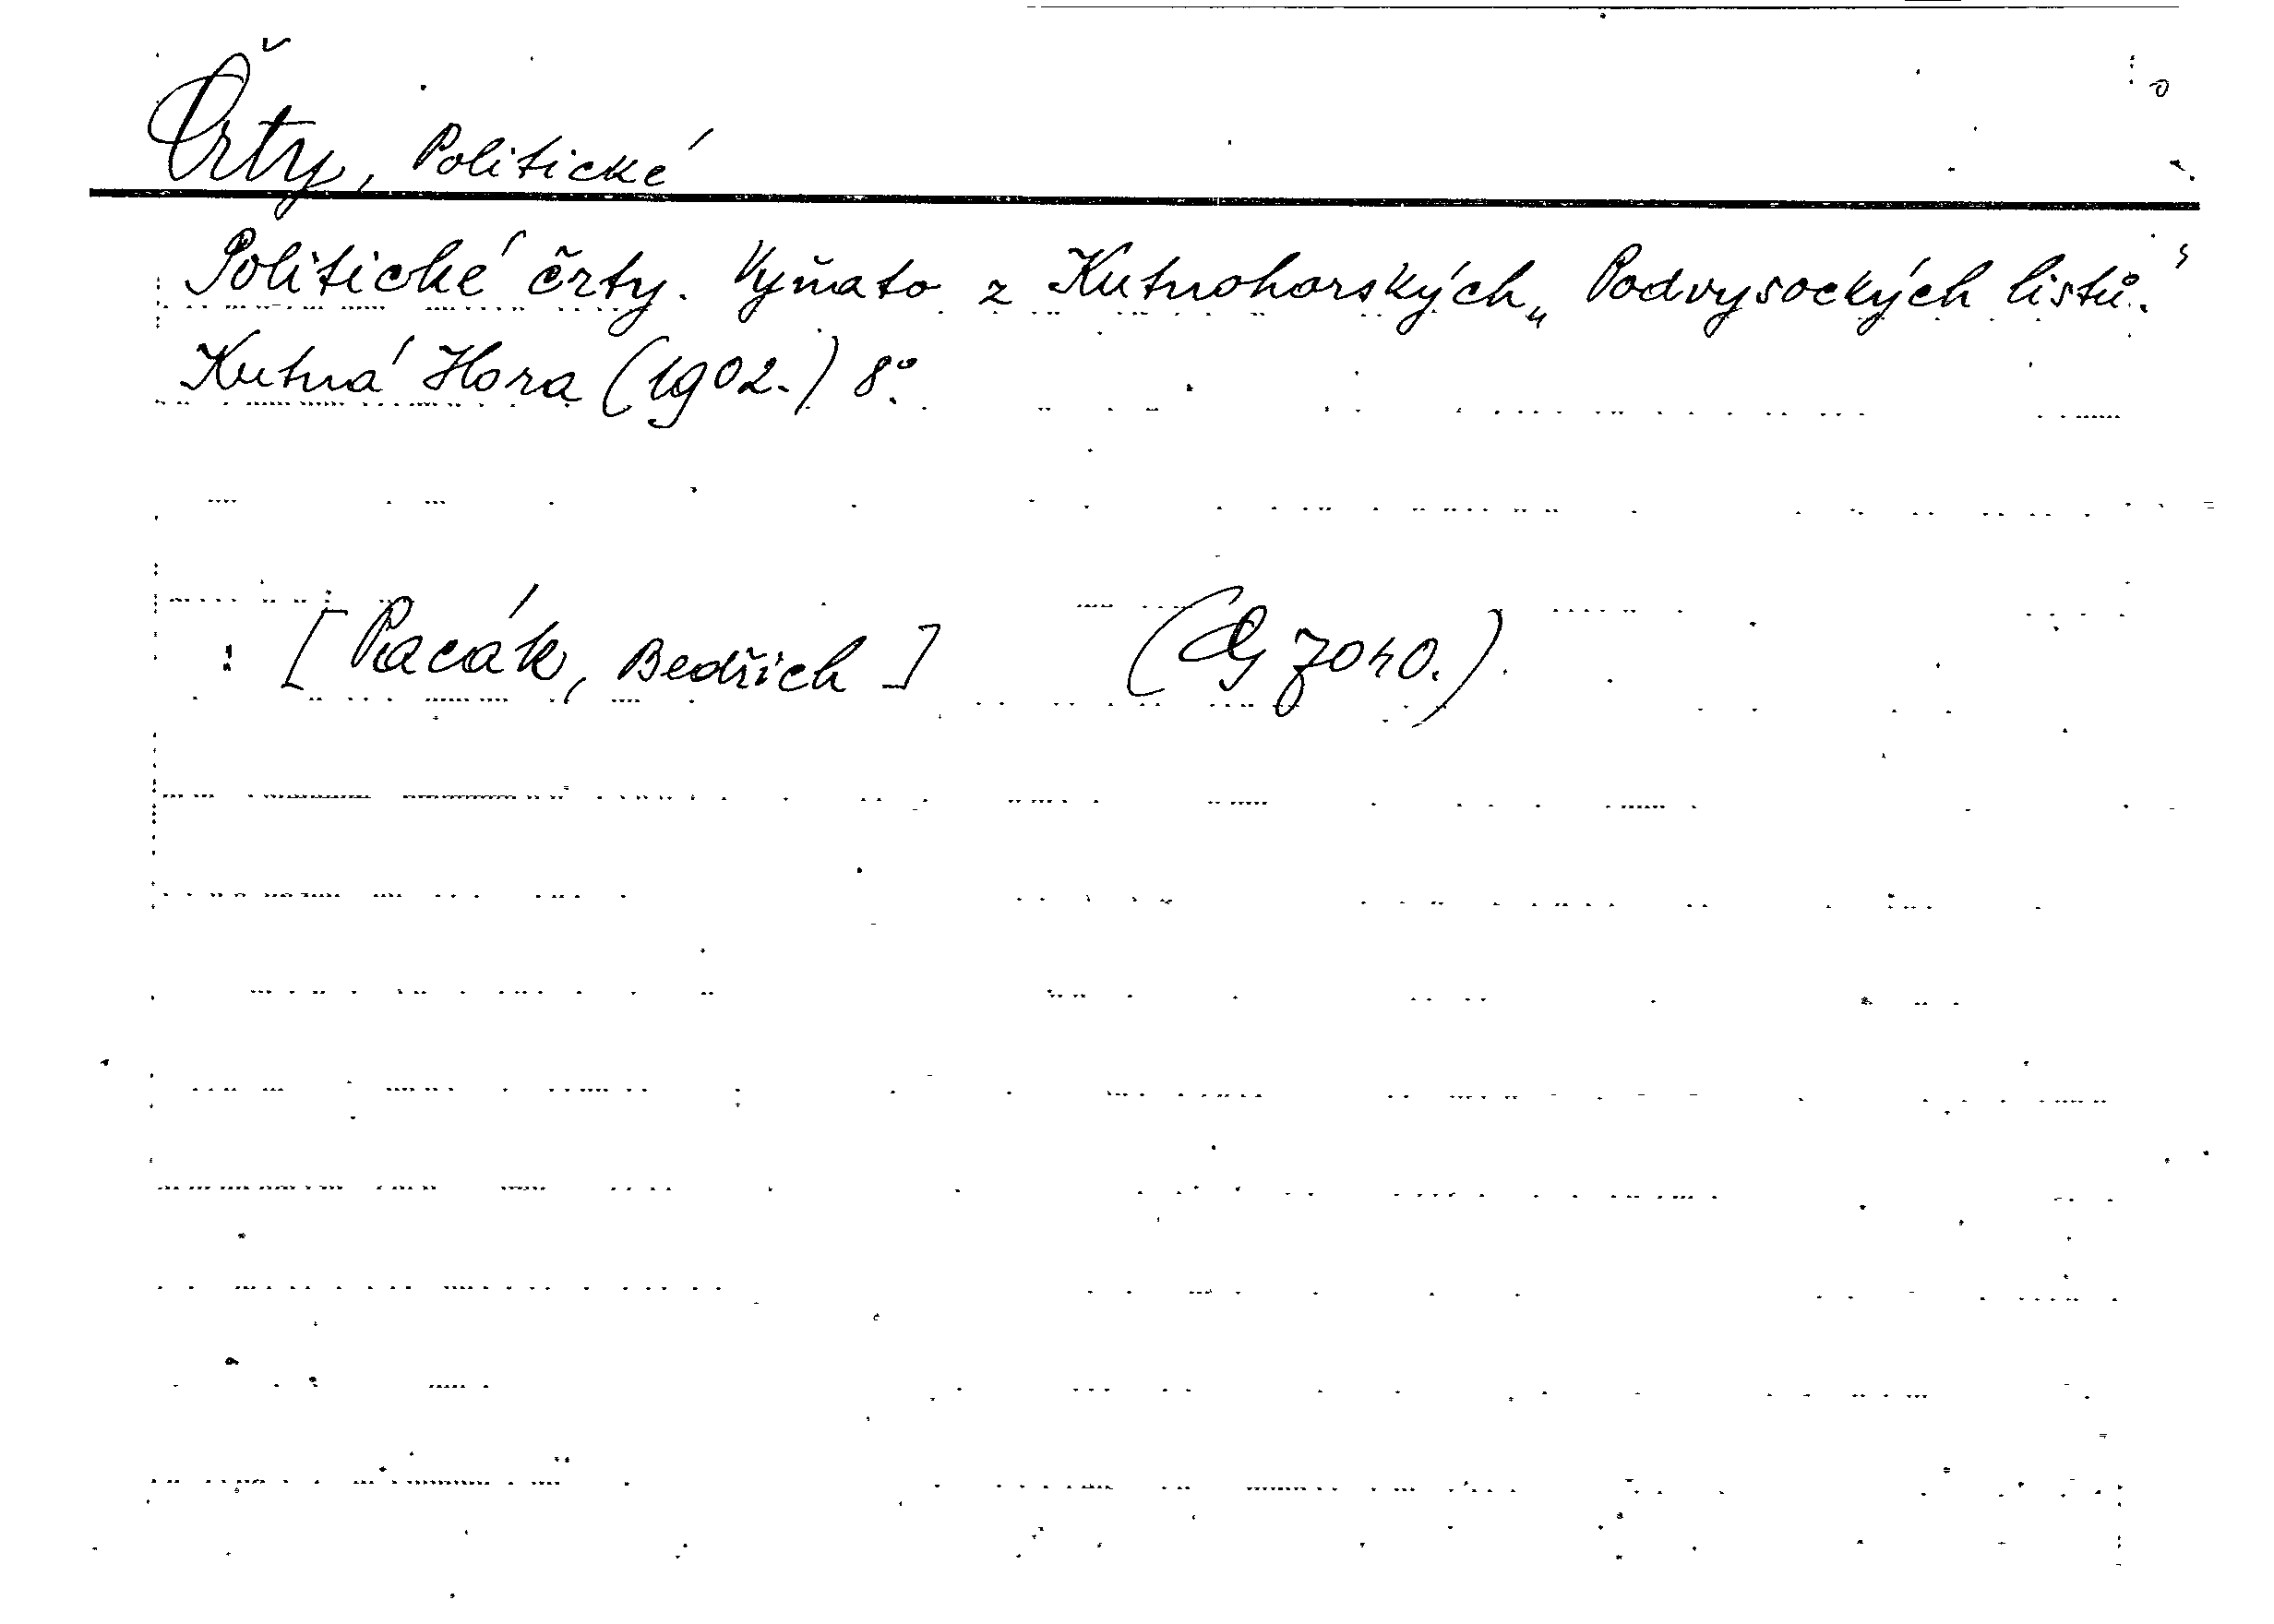 Črty, Politické
Politické črty. Vyňato z Kutnohorských „Podvysockých listů.“
Kutná Hora (1902.) 8°.
: [Pacák, Bedřich]